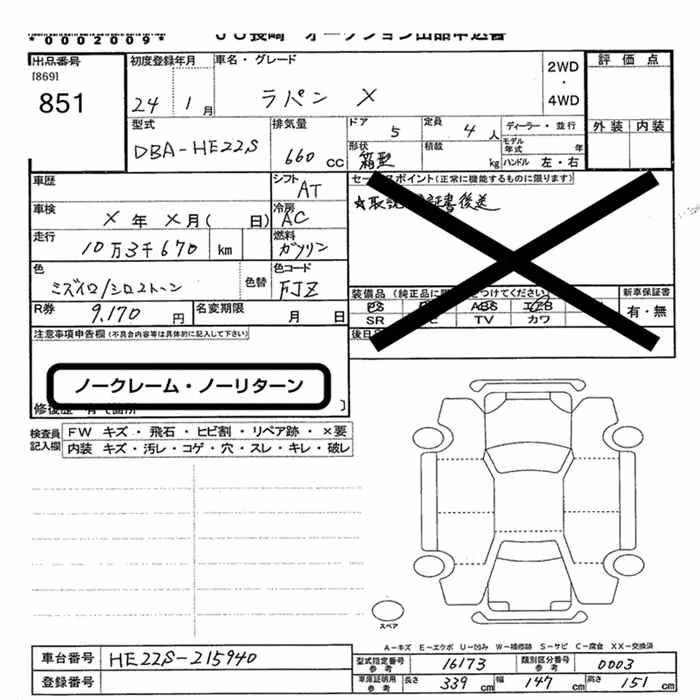 *0002009* JU長崎 オークション出品申込書
出品番号 初度登録年月 車名・グレード 2WD・4WD 評価点
[869]
851 24 1月 ラパン X
型式 排気量 ドア 5 定員 4人 ディーラー・並行 外装 内装
DBA-HE22S 660cc 形状 箱型 積載 kg モデル年式 年 ハンドル 左・右
車歴 シフト AT セールスポイント(正常に機能するものに限ります)
車検 X年 X月( 日) 冷房 AC ☆取説 証書後送
走行 10万3千670 km 燃料 ガソリン
色 ミズイロ/シロ2トーン 色替 色コード FJZ 装備品(純正品に つけてください) 新車保証書
R券 9,170円 名変期限 月 日 PS ABS エアB 有・無
SR TV カワ
注意事項申告欄(不具合内容等は具体的に記入して下さい) 後日
ノークレーム・ノーリターン
修復歴
検査員記入欄 FW キズ・飛石・ヒビ割・リペア跡・×要
内装 キズ・汚レ・コゲ・穴・スレ・キレ・破レ
スペア
A-キズ E-エクボ U-凹み W-補修跡 S-サビ C-腐食 XX-交換済
車台番号 HE22S-215940 型式指定番号 参考 16173 類別区分番号 参考 0003
登録番号 車庫証明用 参考 長さ 339cm 幅 147cm 高さ 151cm